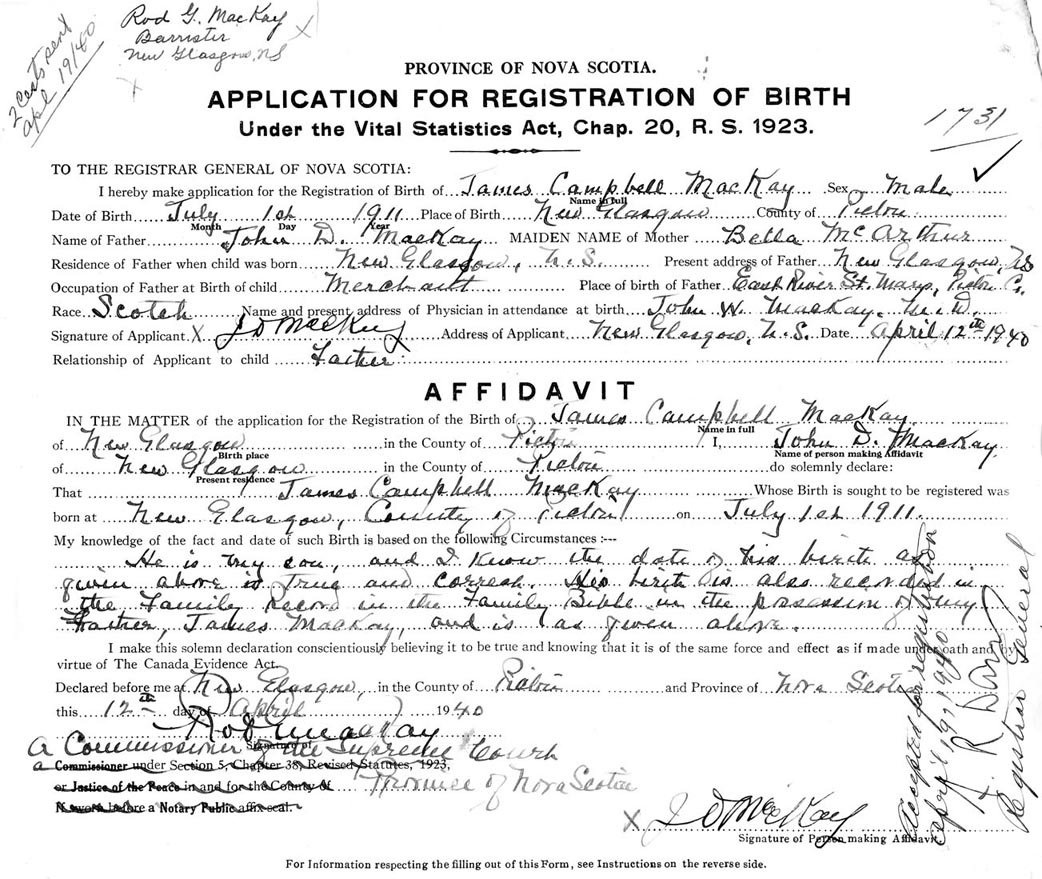 Rod G. MacKay
Barrister
New Glasgow, NS
X
X
2 Cests sent
Apl 19/40
PROVINCE OF NOVA SCOTIA.
APPLICATION FOR REGISTRATION OF BIRTH
Under the Vital Statistics Act, Chap. 20, R. S. 1923.
1731
TO THE REGISTRAR GENERAL OF NOVA SCOTIA:
I hereby make application for the Registration of Birth of James Campbell MacKay Sex Male
Name in full
Date of Birth July 1st 1911 Place of Birth New Glasgow County of Pictou
Month Day Year
Name of Father John D. MacKay MAIDEN NAME of Mother Bella McArthur
Residence of Father when child was born New Glasgow, N.S. Present address of Father New Glasgow, NS
Occupation of Father at Birth of child Merchant Place of birth of Father East River St. Marys, Pictou Co.
Race Scotch Name and present address of Physician in attendance at birth John W. MacKay, M.D.
Signature of Applicant X J D MacKay Address of Applicant New Glasgow, N.S. Date April 12th 1940
Relationship of Applicant to child Father
AFFIDAVIT
IN THE MATTER of the application for the Registration of the Birth of James Campbell MacKay
Name in full
of New Glasgow in the County of Pictou I, John D. MacKay,
Birth place Name of person making Affidavit
of New Glasgow in the County of Pictou do solemnly declare:
Present residence
That James Campbell MacKay Whose Birth is sought to be registered was
born at New Glasgow, County of Pictou on July 1st 1911
My knowledge of the fact and date of such Birth is based on the following Circumstances :---
He is my son, and I know the date of his birth as
given above is true and correct. His birth is also recorded in
the Family Record in the Family Bible in the possession of my
Father, James MacKay, and is as given above.
I make this solemn declaration conscientiously believing it to be true and knowing that it is of the same force and effect as if made under oath and by
virtue of The Canada Evidence Act.
Declared before me at New Glasgow, in the County of Pictou and Province of Nova Scotia
this 12th day of April 1940
Rod G MacKay
Signature of
A Commissioner of the Supreme Court
a Commissioner under Section 5, Chapter 38, Revised Statutes, 1923,
or Justice of the Peace in and for the County of Province of Nova Scotia
If sworn before a Notary Public affix seal.
X J D MacKay
Signature of Person making Affidavit.
Accepted for registration
April 19, 1940
Registrar General
For Information respecting the filling out of this Form, see Instructions on the reverse side.